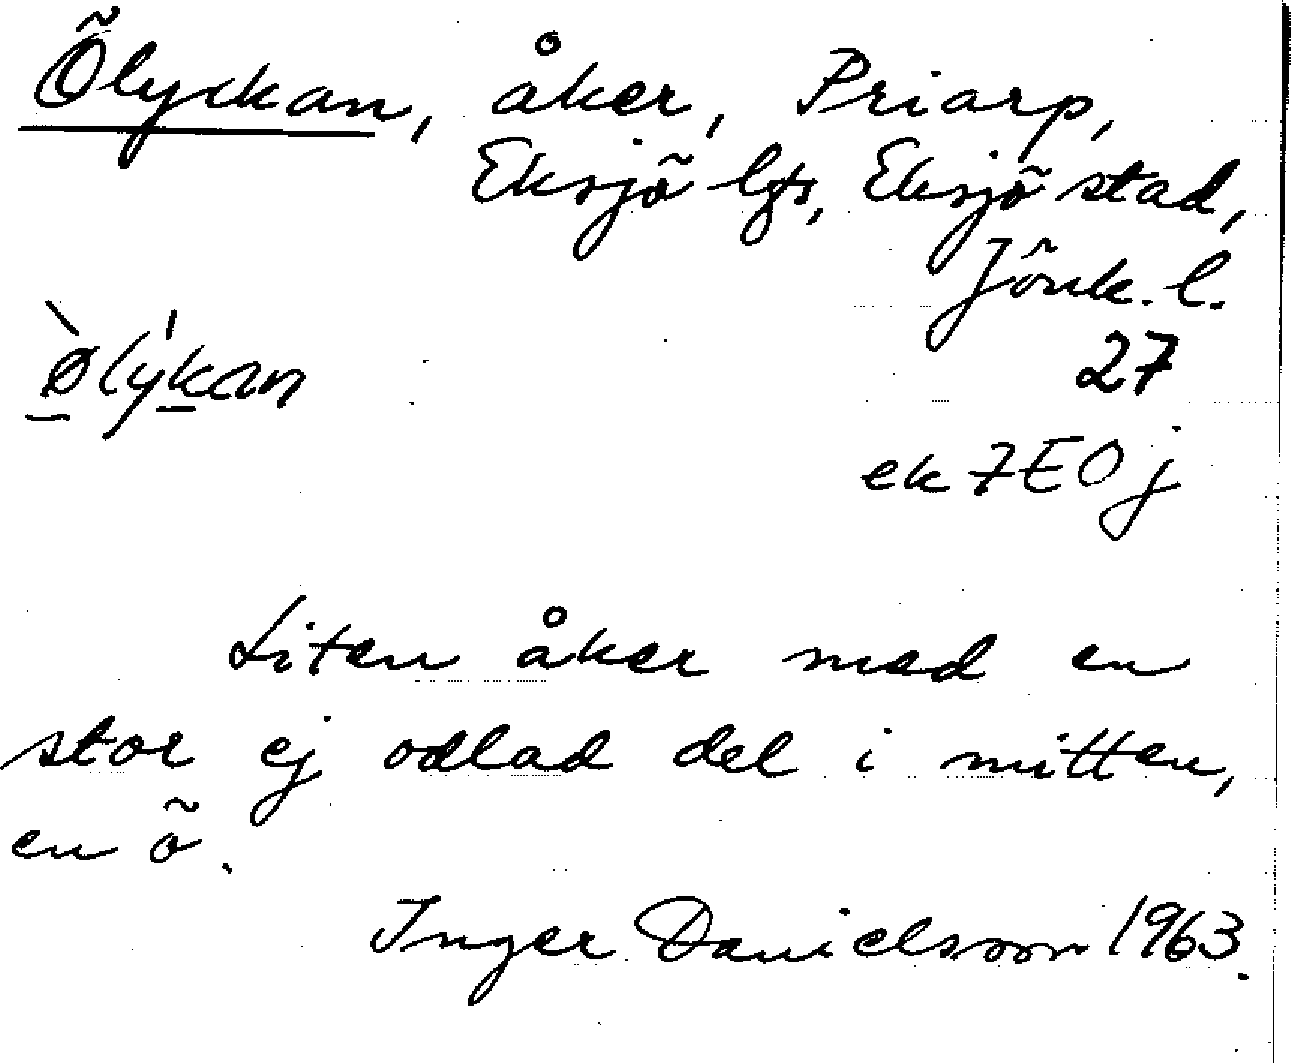 Ölyckan, åker, Priarp,
Eksjö lfs, Eksjö stad,
Jönk. l.
ø̀lýkan
27
ek 7E0j
Liten åker med en
stor ej odlad del i mitten,
en ö.
Inger Danielsson 1963.